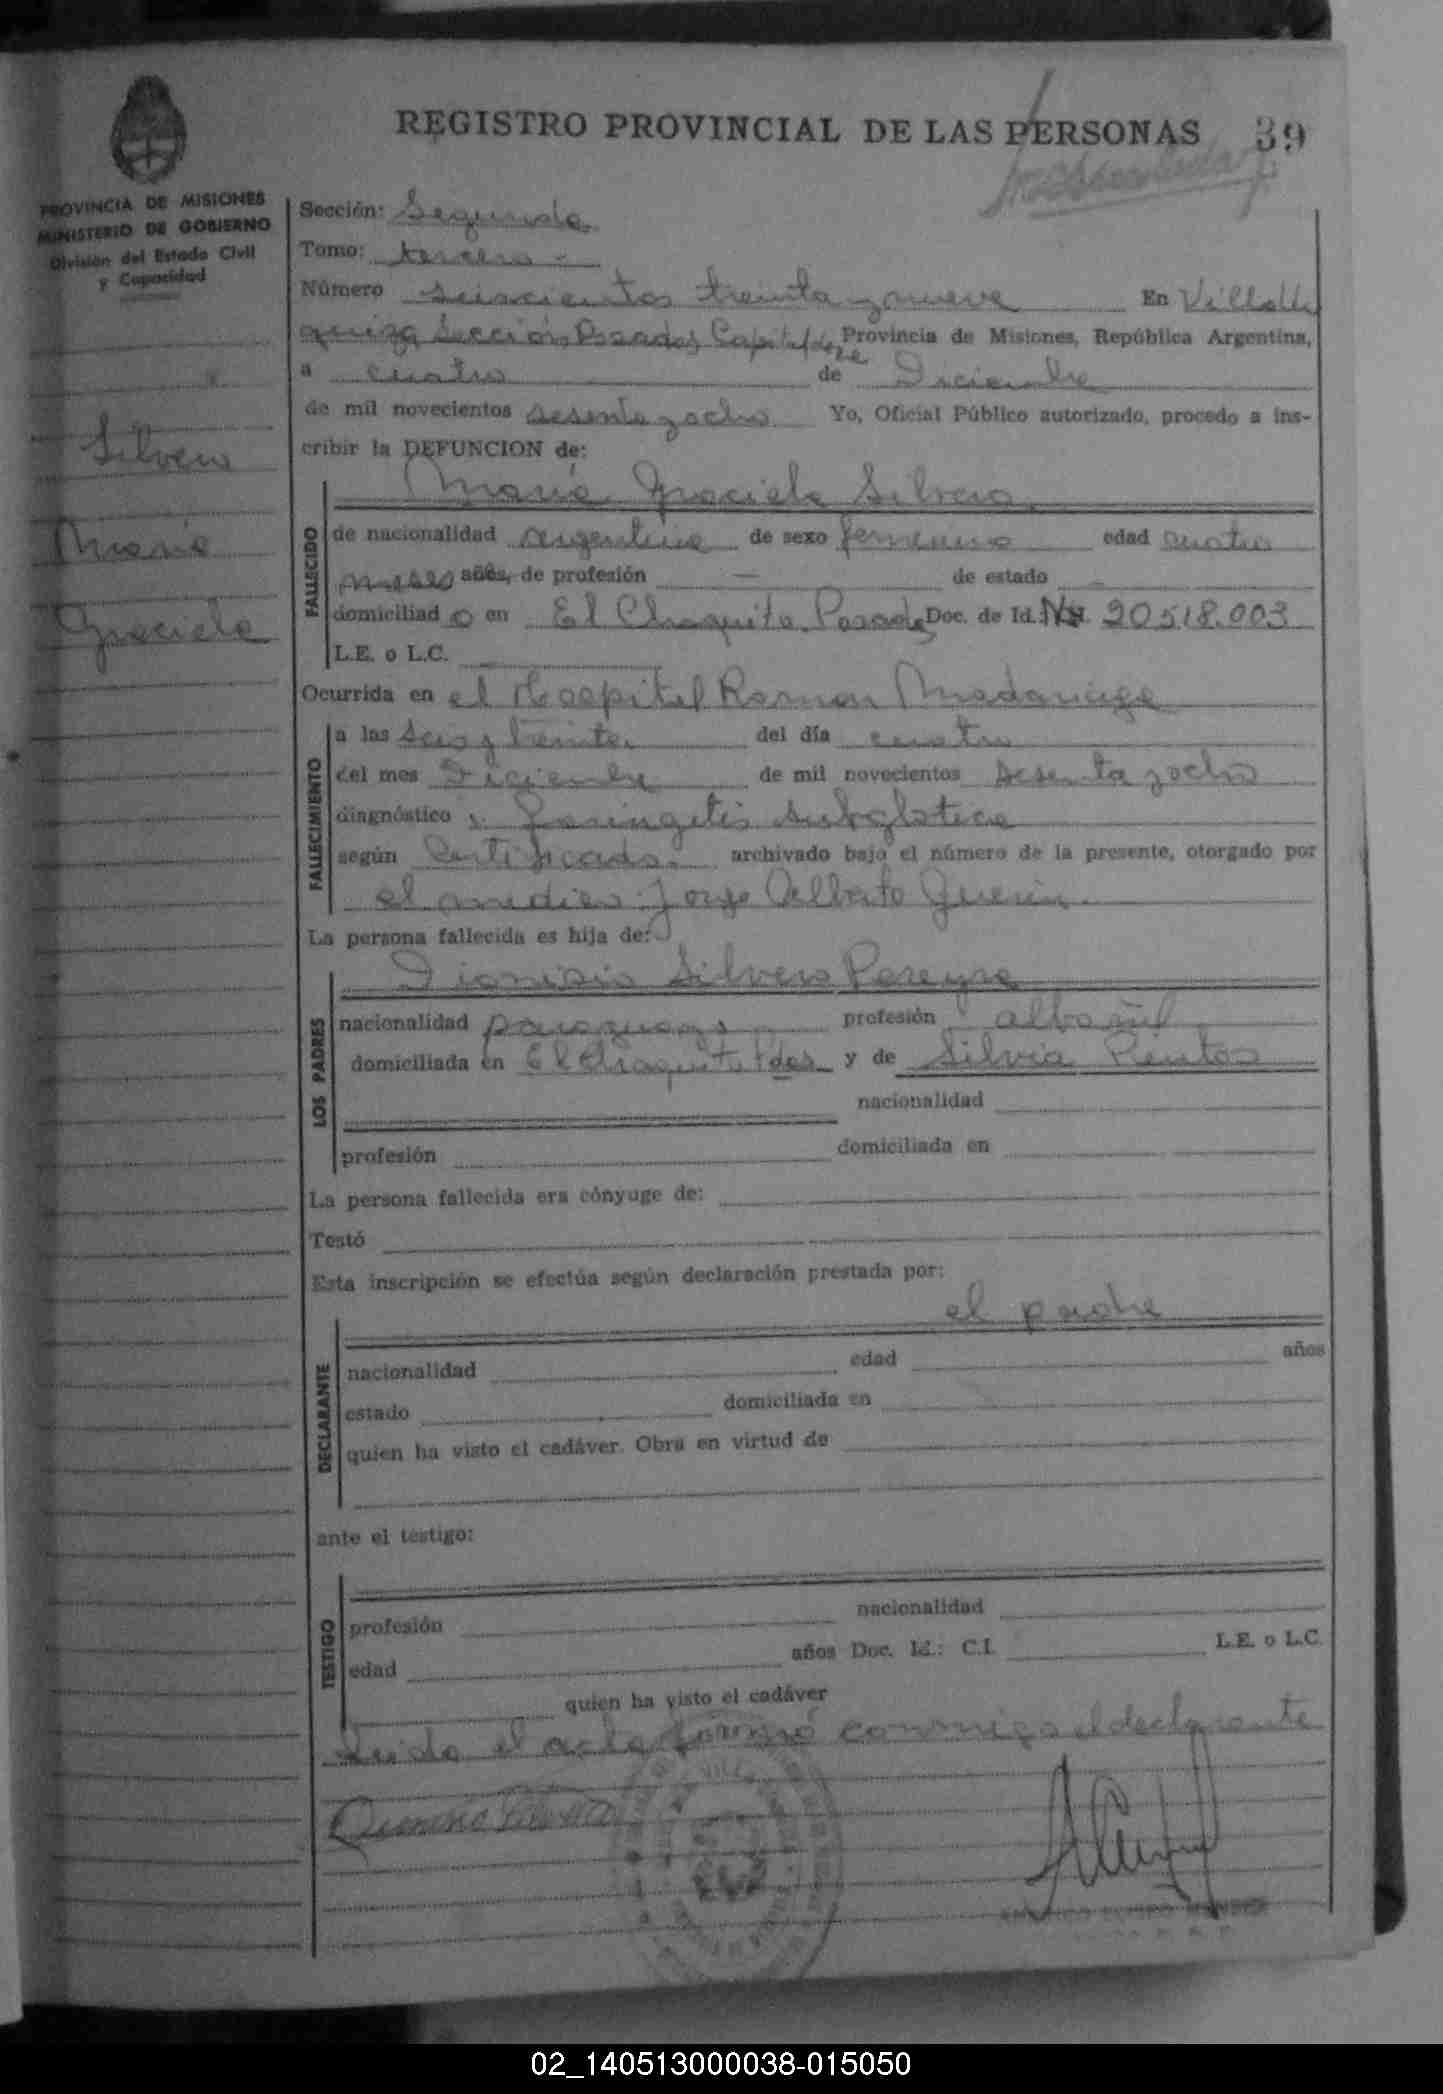 REGISTRO PROVINCIAL DE LAS PERSONAS 39
PROVINCIA DE MISIONES
MINISTERIO DE GOBIERNO
División del Estado Civil
y Capacidad
Silvero
María
Graciela
Sección: Segunda
Tomo: tercero
Número seiscientos treinta y nueve En Villa Ur
quiza Sección Posadas Capital de la Provincia de Misiones, República Argentina,
a cuatro de Diciembre
de mil novecientos sesenta y ocho Yo, Oficial Público autorizado, procedo a ins-
cribir la DEFUNCION de:
María Graciela Silvero
FALLECIDO
de nacionalidad argentina de sexo femenino edad cuatro
meses años, de profesión — de estado
domiciliad o en El Chaquito Posadas Doc. de Id. Nº 20518.003
L.E. o L.C.
Ocurrida en el Hospital Ramon Madariaga
FALLECIMIENTO
a las Seis y treinta del día cuatro
del mes Diciembre de mil novecientos sesenta y ocho
diagnóstico: Laringitis subglotica
según Certificado. archivado bajo el número de la presente, otorgado por
el medico: Jorge Alberto
La persona fallecida es hija de:
LOS PADRES
Dionisio Silvero Pereyra
nacionalidad paraguayo profesión albañil
domiciliada en El Chaquito Pdas y de Silvia Pintos
nacionalidad
profesión domiciliada en
La persona fallecida era cónyuge de:
Testó
Esta inscripción se efectúa según declaración prestada por:
el padre
DECLARANTE
nacionalidad edad años
estado domiciliada en
quien ha visto el cadáver. Obra en virtud de
ante el testigo:
TESTIGO
profesión nacionalidad
edad años Doc. Id.: C.I. L.E. o L.C.
quien ha visto el cadáver
Leida el acta firmó conmigo el declarante
02_140513000038-015050